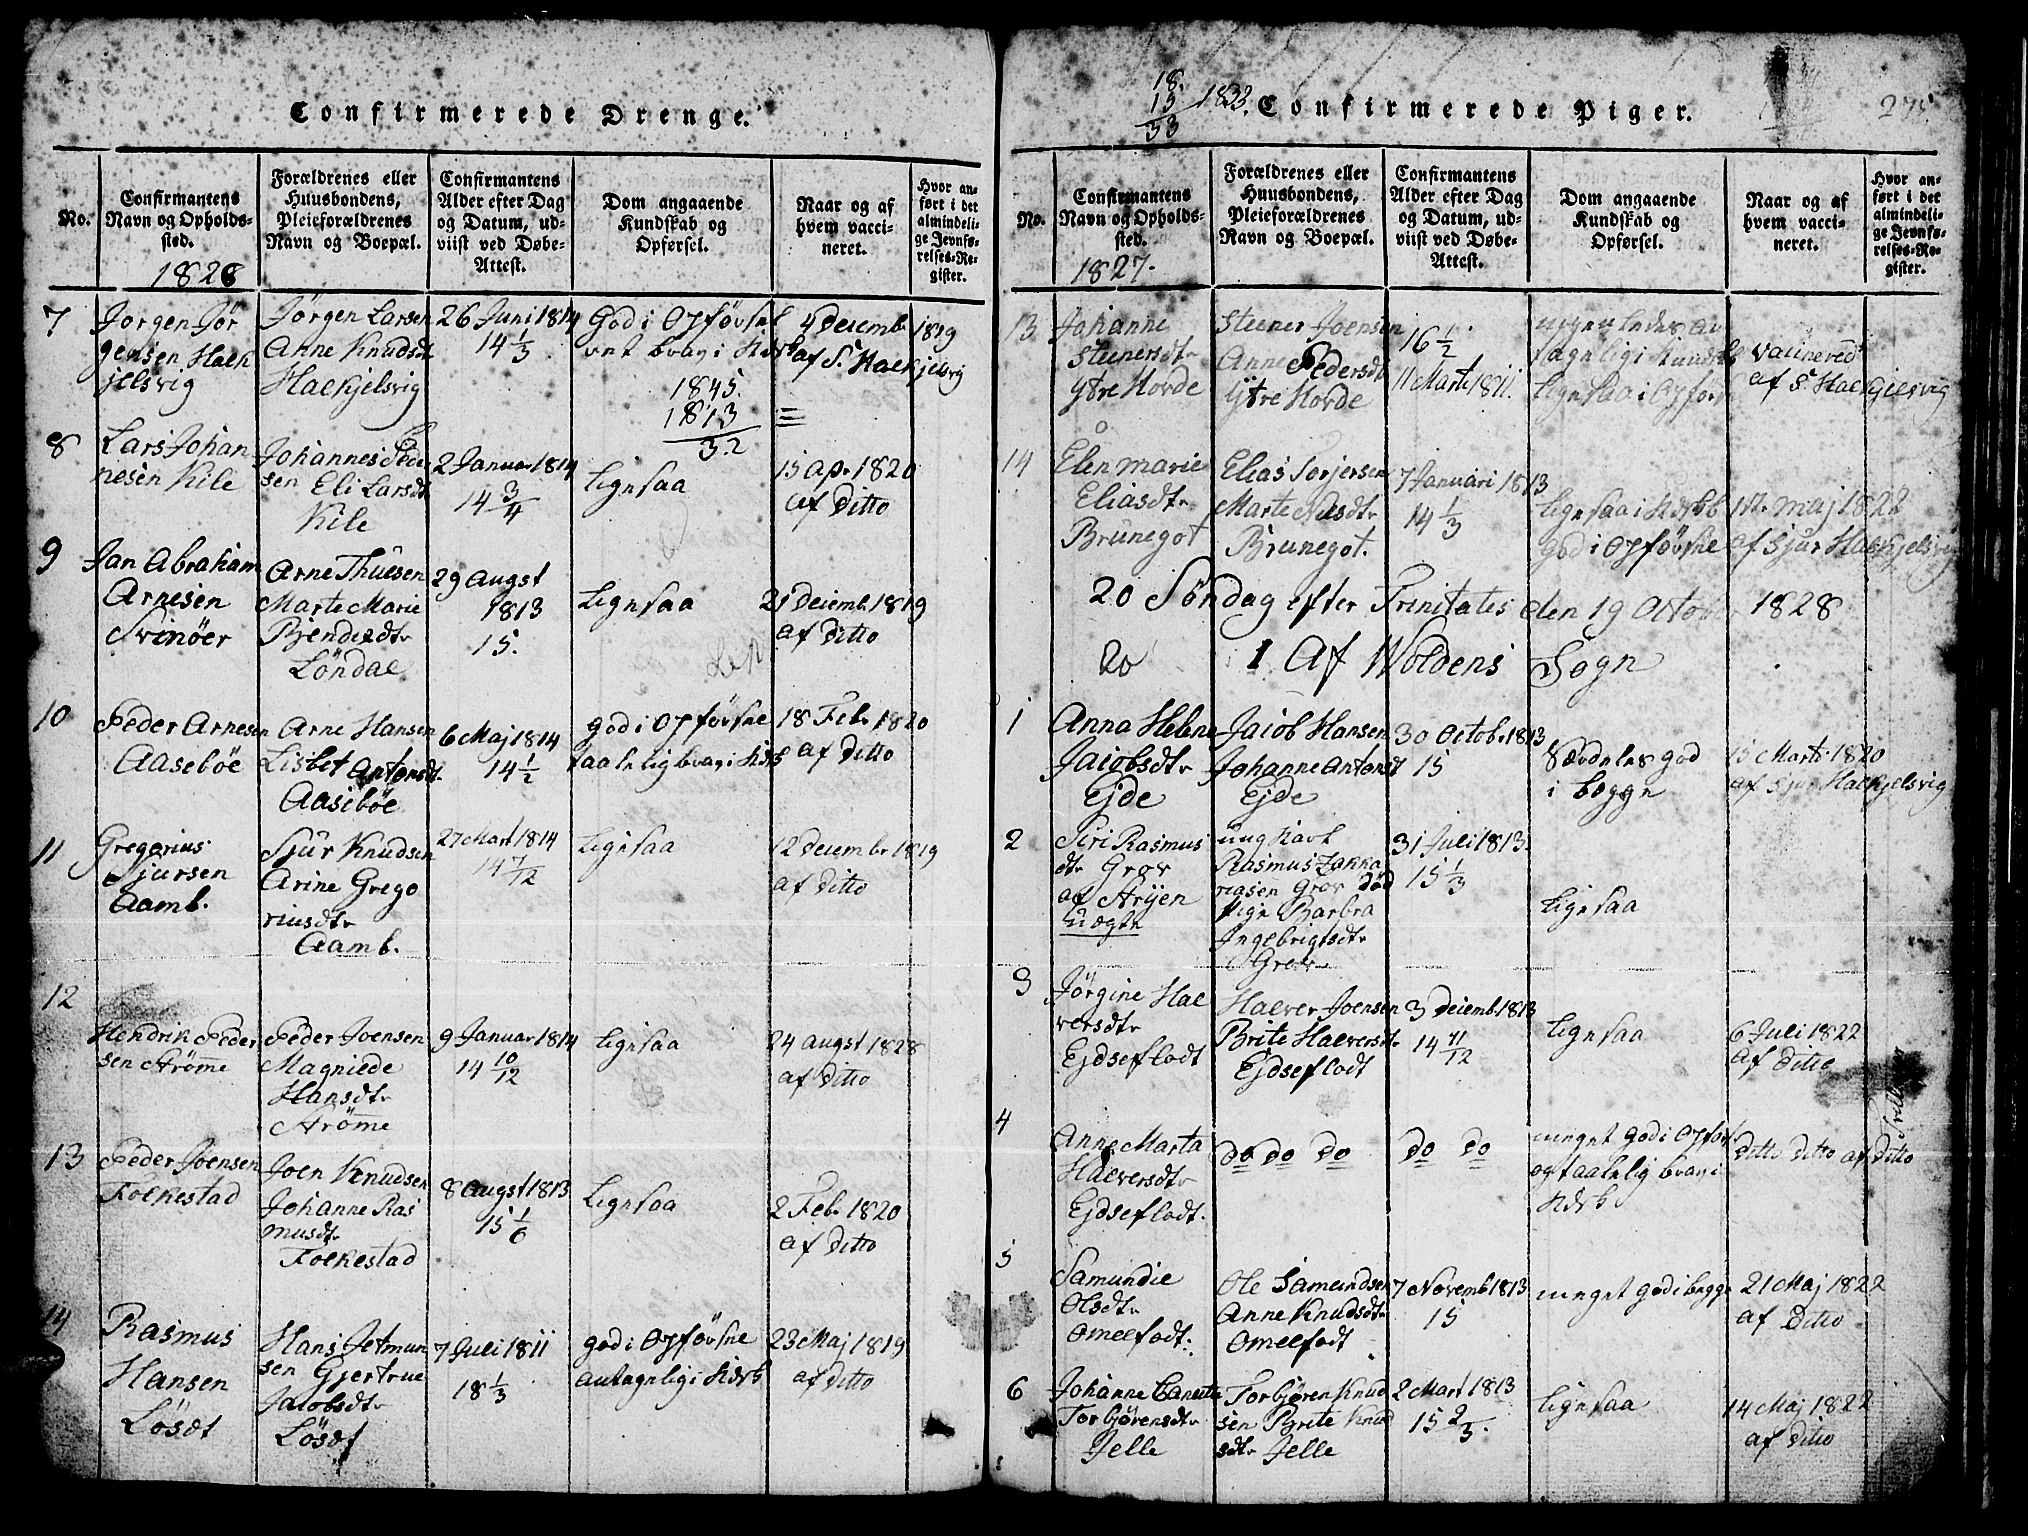 Confirmerede Drenge.
No.
Confirmantens
Navn og Opholds-
sted.
1828
Forældrenes eller
Huusbondens,
Pleieforældrenes
Navn og Boepæl.
Confirmantens
Alder efter Dag
og Datum, ud-
viist ved Døbe-
Attest.
Dom angaaende
Kundskab og
Opførsel.
Naar og af
hvem vacci-
neret.
Hvor an-
ført i det
almindeli-
ge Jevnfø-
relses-Re-
gister.
7
Jørgen Jør
gensen Hael
jelsvig
Jørgen Larsen
Anne Knudsdt
Haelkjelsvig
26 Juni 1814
14 1/3
God i Opførsel
4 Decemb 1819
af S. Haelkjelsvig
1845.
1813
32
8
Lars Johan
nesen Kile
Johannes Peder
sen Eli Larsdt
Kile
2 Januar 1814
14 3/4
Ligesaa
15 apr. 1820
af Ditto
9
Jan Abraham
Arnesen
Svinöer
Arne Thuesen
Marte Marie
Bjendesdtr
Løndal
29 Augst
1813
15.
Ligesaa
21 Decemb 1819
af Ditto
10
Peder Arnesen
Aaseböe
Arne Hansen
Lisbet Antonsdt.
Aaseböe
6 Maj 1814
14 1/2
god i Opførsel
taalelig brav i Kdsk
18 Feb. 1820
af Ditto
11
Gregorius
Sjursen
Aamb.
Sjur Knudsen
Arine Grego
riusdtr
Aamb.
27 Mart 1814
14 7/12
Ligesaa
12 Decembr 1819
af Ditto
12
Hendrik Peder
sen Strømme
Peder Joensen
Magniede
Hansdtr
Strømme
9 Januar 1814
14 10/12
Ligesaa
24 augst 1828
af Ditto
13
Peder Joensen
Folkestad
Joen Knudsen
Johanne Ras
musdtr
Folkestad
8 Augst 1813
15 1/6
Ligesaa
2 Feb. 1820
af Ditto
14
Rasmus
Hansen
Løsæt
Hans Jetmun
sen Gjertrue
Jacobsdtr
Løsæt
7 Juli 1811
18 1/3
god i Opførsel
antagelig i Kdsk
23 Maj 1819
af Ditto
18.
15
33
1833.
Confirmerede Piger.
275
No.
Confirmantens
Navn og Opholds-
sted.
1827.
Forældrenes eller
Huusbondens,
Pleieforældrenes
Navn og Boepæl.
Confirmantens
Alder efter Dag
og Datum, ud-
viist ved Døbe-
Attest.
Dom angaaende
Kundskab og
Opførsel.
Naar og af
hvem vacci-
neret.
Hvor an-
ført i det
almindeli-
ge Jevnfø-
relses-Re-
gister.
13
Johanne
Steinersdtr
Ytre Hovde
Steener Joensen
Anne Pedersdt
Ytre Hovde
16 1/2
11 Marts 1811.
ligesaa i Opførs
vaccinered
af S. Haelkjelsvig
14
Elen Marie
Eliasdtr
Brunegot
Elias Torjersen
Marte Nilsdtr
Brunegot.
7 Januari 1813
14 1/3
Ligesaa i Kdskb
god i Opførsel
12 maj 1822
af Sjur Haelkjelsvig
20 Söndag efter Trinitates den 19 October 1828
20 1 Af Woldens Sogn
1
Anna Helene
Jacobsdtr
Ejde
Jacob Hansen
Johanne Antonsdt
Ejde
30 Octob. 1813
15
Særdeles god
i begge
15 Marts 1820
af Sjur Haelkjelsvig
2
Siri Rasmus
dtr Grøv
af Stryen
uægte
ung karl
Rasmus Zakka
riasen Grøv død
Pige Barbra
Ingebrigtsdtr
Grøv
31 Juli 1813.
15 1/3
Ligesaa
3
Jørgine Hal
versdtr
Ejdseflodt
Halver Joensen
Brite Halversdtr
Ejdseflodt
3 Decemb. 1813
14 11/12
Ligesaa
6 Juli 1822
af Ditto
4
Anne Marta
Halversdtr
Ejdseflodt.
Do Do Do
Do Do
meget god i Opførs
og taalelig brav i
Kdsk
Ditto Ditto af Ditto
5
Samundie
Olsdtr
Omelfodt.
Ole Samundsen
Anne Knudsdtr
Omelfodt
7 Novemb 1813
15
meget god i begge
21 Maj 1822
af Ditto
6
Johanne Canutta
Torbjörensdtr
Jelle
Torbjören Knud
sen Brite Knud
sdtr Jelle
2 Mart 1813
15 2/3.
Ligesaa
14 Maj 1822
af Ditto